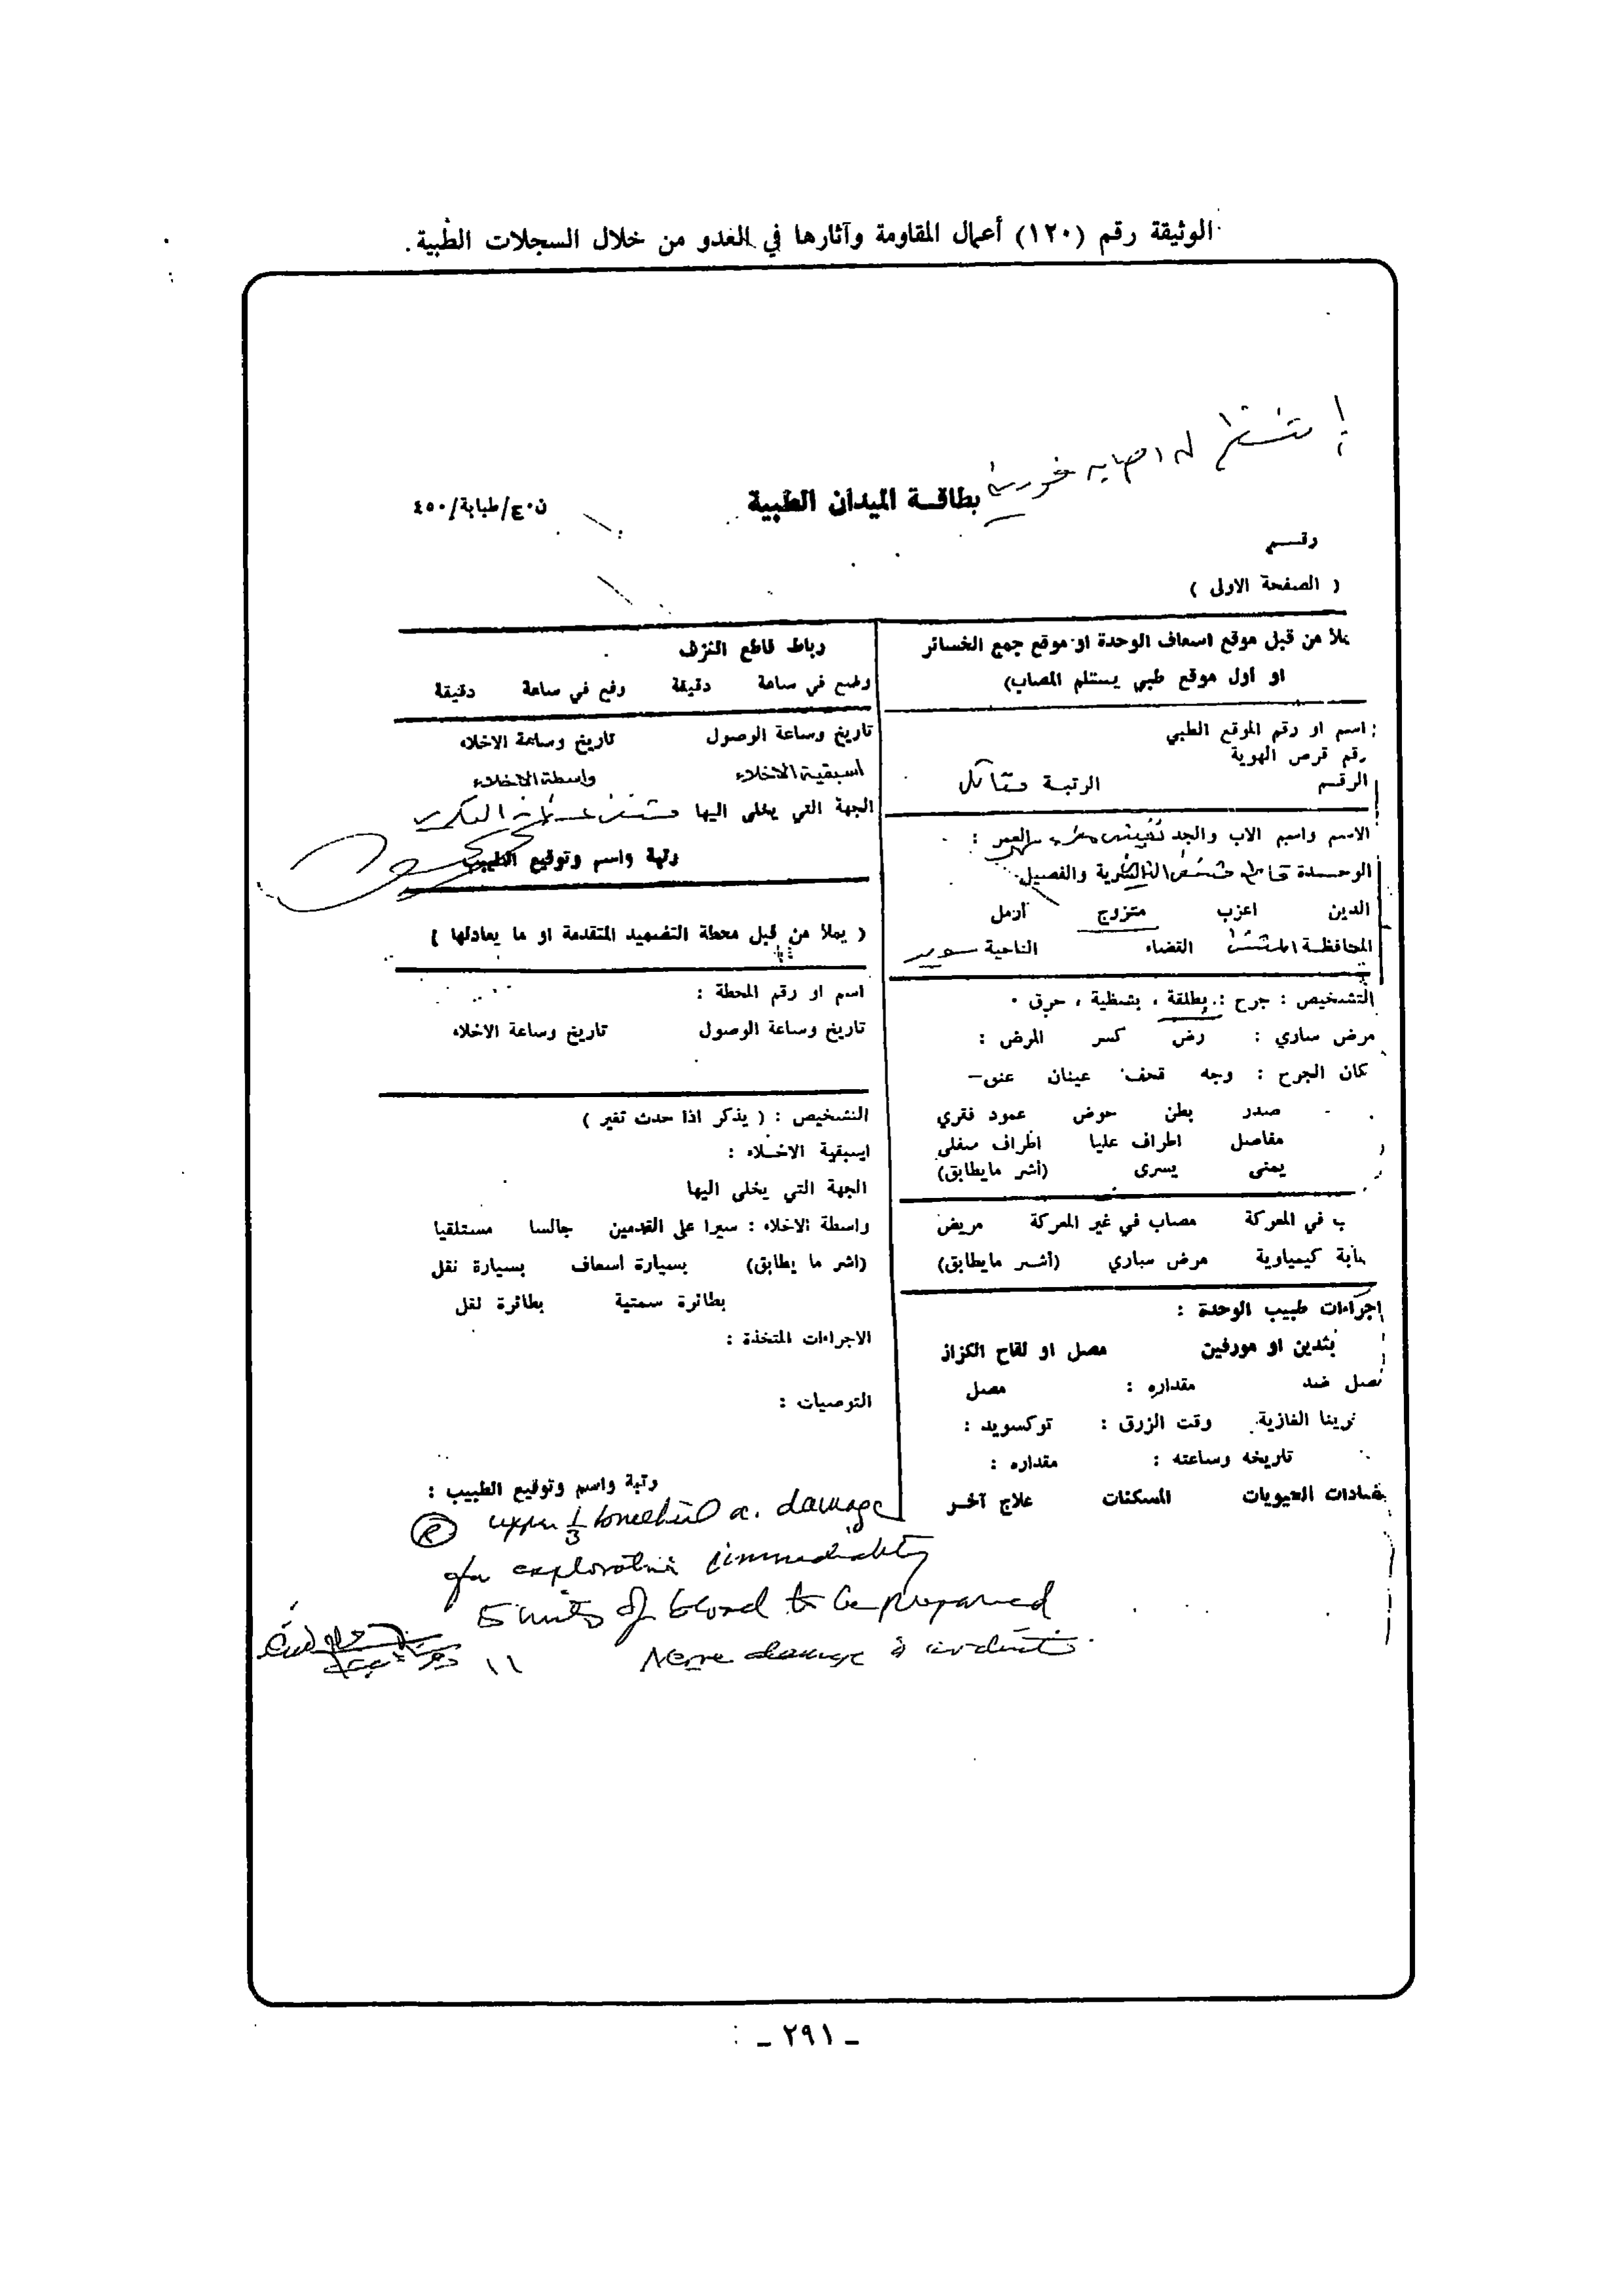 الوثيقة رقم (١٢٠) أعمال المقاومة وآثارها في العدو من خلال السجلات الطبية.
بطاقة الميدان الطبية
ن٠ع/طبابة/٤٥٠
رقم
( الصفحة الاولى )
يملأ من قبل موقع اسعاف الوحدة او موقع جمع الخسائر
او أول موقع طبي يستلم المصاب)
اسم او رقم الموقع الطبي :
رقم قرص الهوية
الرقم الرتبة
الاسم واسم الاب والجد العمر :
الوحدة السرية والفصيل
الدين اعزب متزوج أرمل
المحافظة القضاء الناحية
التشخيص : جرح : بطلقة ، بشظية ، حرق ٠
مرض ساري : رض كسر المرض :
كان الجرح : وجه قحف عينان عنق –
صدر بطن حوض عمود فقري
مفاصل اطراف عليا اطراف سفلى
يمنى يسرى (أشر مايطابق)
ب في المعركة مصاب في غير المعركة مريض
بابة كيمياوية مرض ساري (أشر مايطابق)
اجراءات طبيب الوحدة :
بثدين او مورفين مصل او لقاح الكزاز
مصل ضد مقداره : مصل
نرينا الغازية وقت الزرق : توكسويد :
تاريخه وساعته : مقداره :
ضادات الحيويات المسكنات علاج آخر
رباط قاطع النزف
وضع في ساعة دقيقة رفع في ساعة دقيقة
تاريخ وساعة الوصول تاريخ وساعة الاخلاء
أسبقية الاخلاء واسطة الاخلاء
الجهة التي يخلى اليها
رتبة واسم وتوقيع الطبيب
( يملأ من قبل محطة التضميد المتقدمة او ما يعادلها )
اسم او رقم المحطة :
تاريخ وساعة الوصول تاريخ وساعة الاخلاء
التشخيص : ( يذكر اذا حدث تغير )
اسبقية الاخلاء :
الجهة التي يخلى اليها
واسطة الاخلاء : سيرا على القدمين جالسا مستلقيا
(اشر ما يطابق) بسيارة اسعاف بسيارة نقل
بطائرة سمتية بطائرة نقل
الاجراءات المتخذة :
التوصيات :
رتبة واسم وتوقيع الطبيب :
Ⓡ upper 1/3 brachial a. damage
for exploration immediately
5 units of blood to be prepared
Nerve damage
- ٢٩١ -